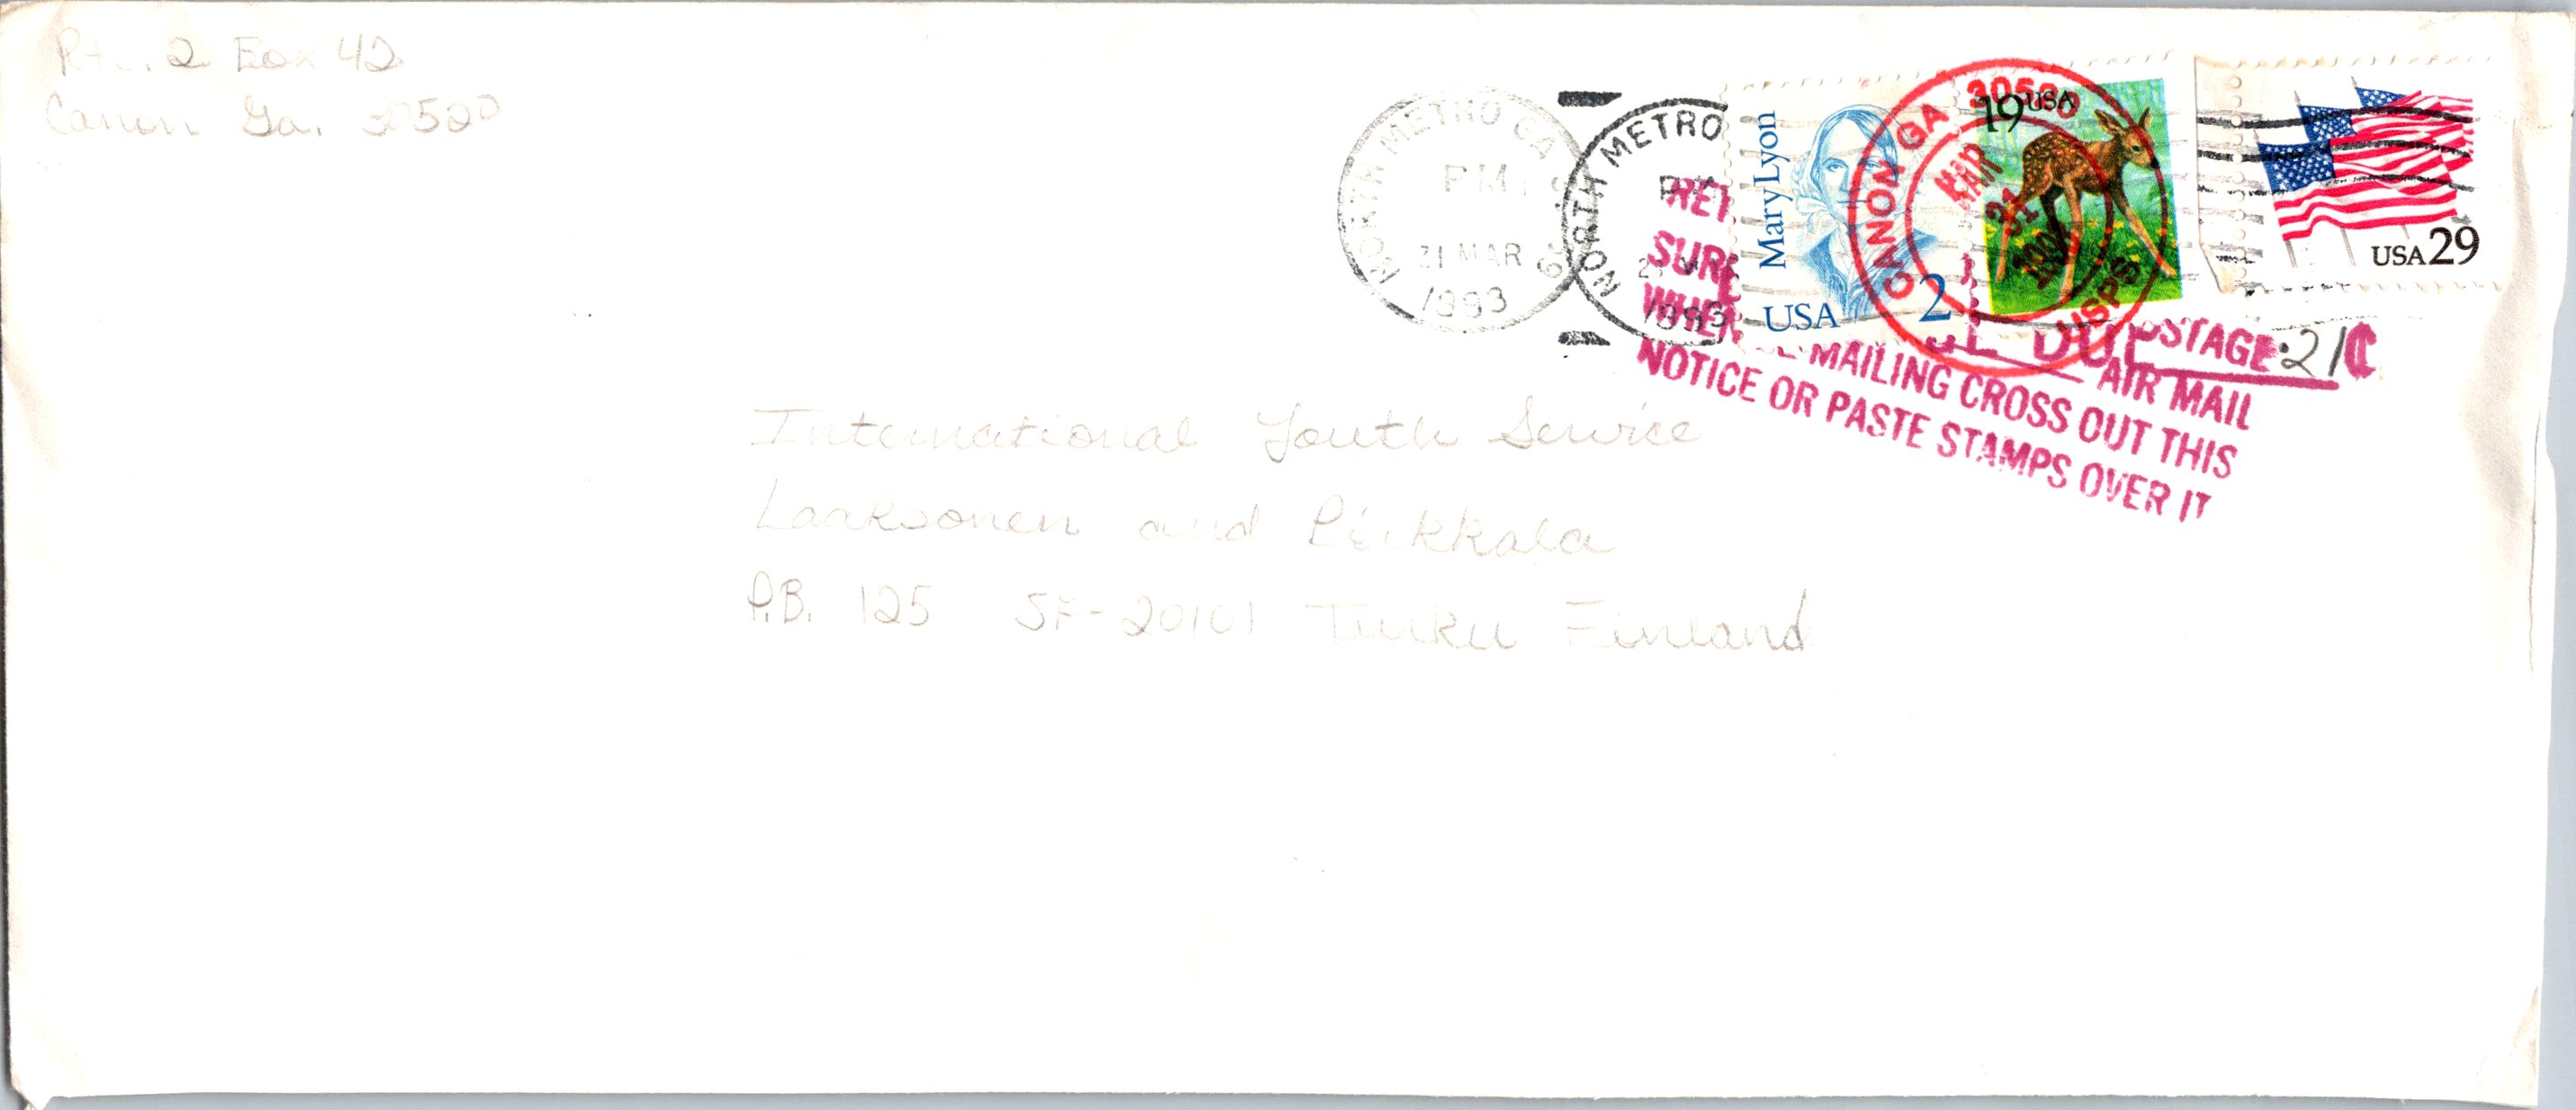 Rte. 2 Box 42
Canon Ga. 30520
NORTH METRO GA
PM
31 MAR
1993
NORTH METRO
1993
Mary Lyon
USA 2
CANON GA 30520
MAR
31
USPS
19 USA
USA 29
POSTAGE .21¢
AIR MAIL
MAILING CROSS OUT THIS
NOTICE OR PASTE STAMPS OVER IT
International Youth Service
Laaksonen and Pirkkala
P.B. 125 SF-20101 Turku Finland